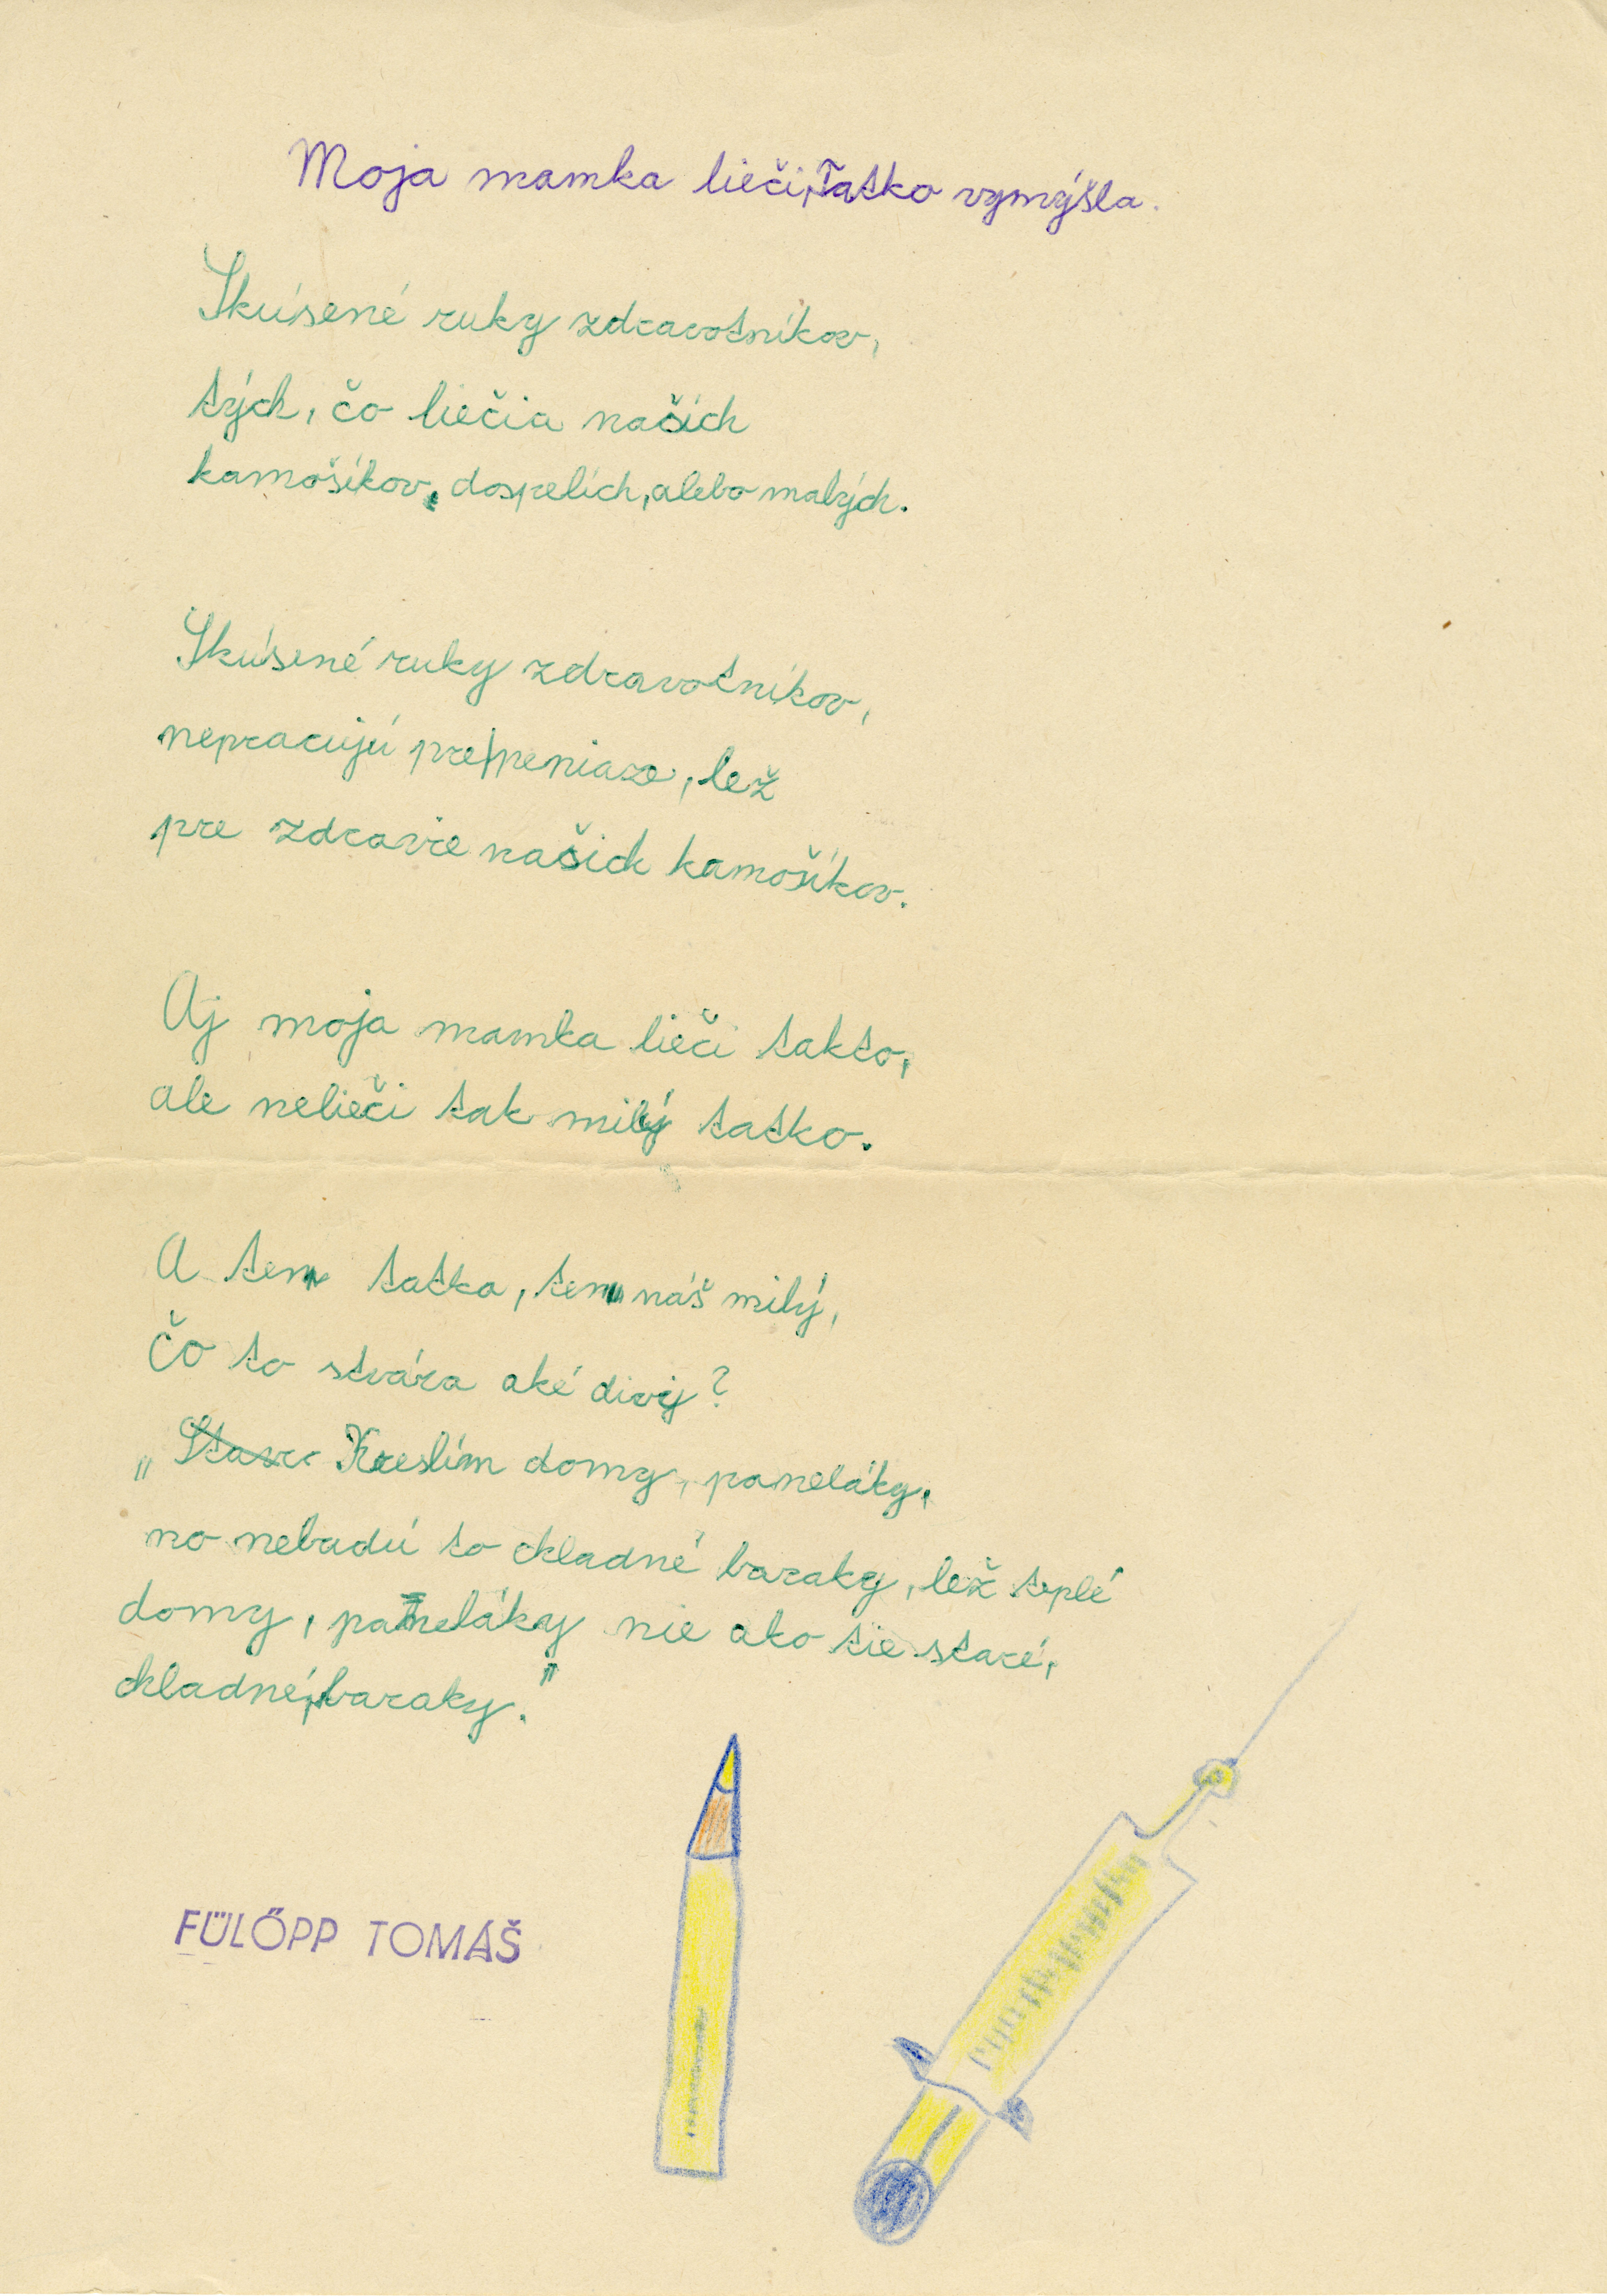 Moja mamka liečí, Taťko vymýšla.
Skúsené ruky zdravotníkov,
tých, čo liečia našich
kamošíkov, dospelích, alebo malých.
Skúsené ruky zdravotníkov,
nepracujú pre peniaze, lež
pre zdravie našich kamošíkov.
Aj moja mamka liečí takto,
ale neliečí tak milý taťko.
A ten taťka, ten náš milý,
Čo to stvára aké divy?
„Stav Kreslím domy, paneláky,
no nebudú to chladné baraky, lež teplé
domy, paneláky nie ako tie staré,
chladné, baraky."
FÜLŐPP TOMÁŠ